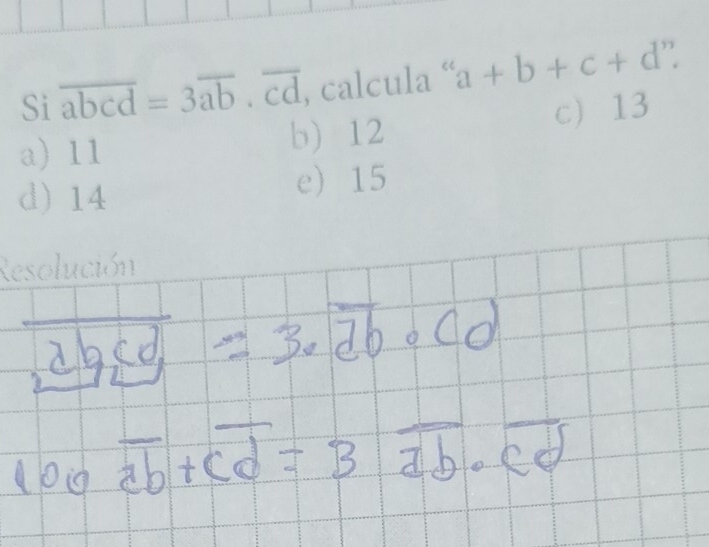 Si abcd = 3ab . cd, calcula “a + b + c + d”.
a) 11 b) 12 c) 13
d) 14 e) 15
Resolución
abcd = 3. ab . cd
100 ab + cd = 3 ab . cd